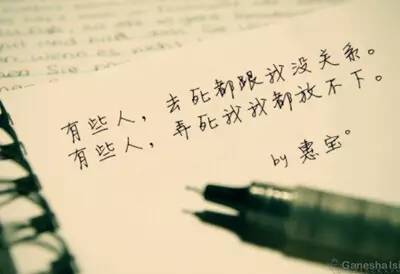 有些人，去死都跟我没关系。
有些人，弄死我我都放不下。
by 惠宝。
GaneshaIsi